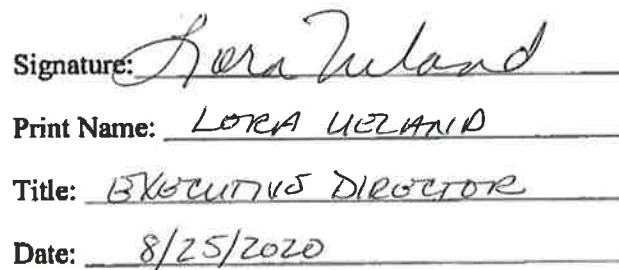 Signature: Lora Ueland
Print Name: LORA UELAND
Title: EXECUTIVE DIRECTOR
Date: 8/25/2020